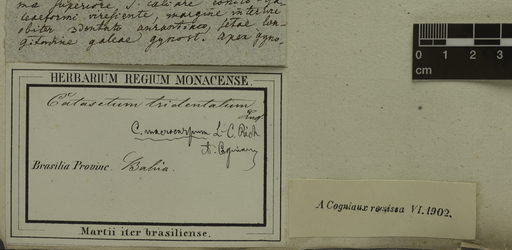 ma superiore s. calcare conico-ga-
leaeformi, virescente, margine integro
obiter 3dentato aurantiaco, setae lon-
gitudine galeae gynost. Apex gyno-
HERBARIUM REGIUM MONACENSE.
Catasetum tridentatum
C. macrocarpum L.C. Rich
A. Cogniaux
Brasilia Provinc. Bahia.
Martii iter brasiliense.
A Cogniaux remissa VI. 1902.
0
cm